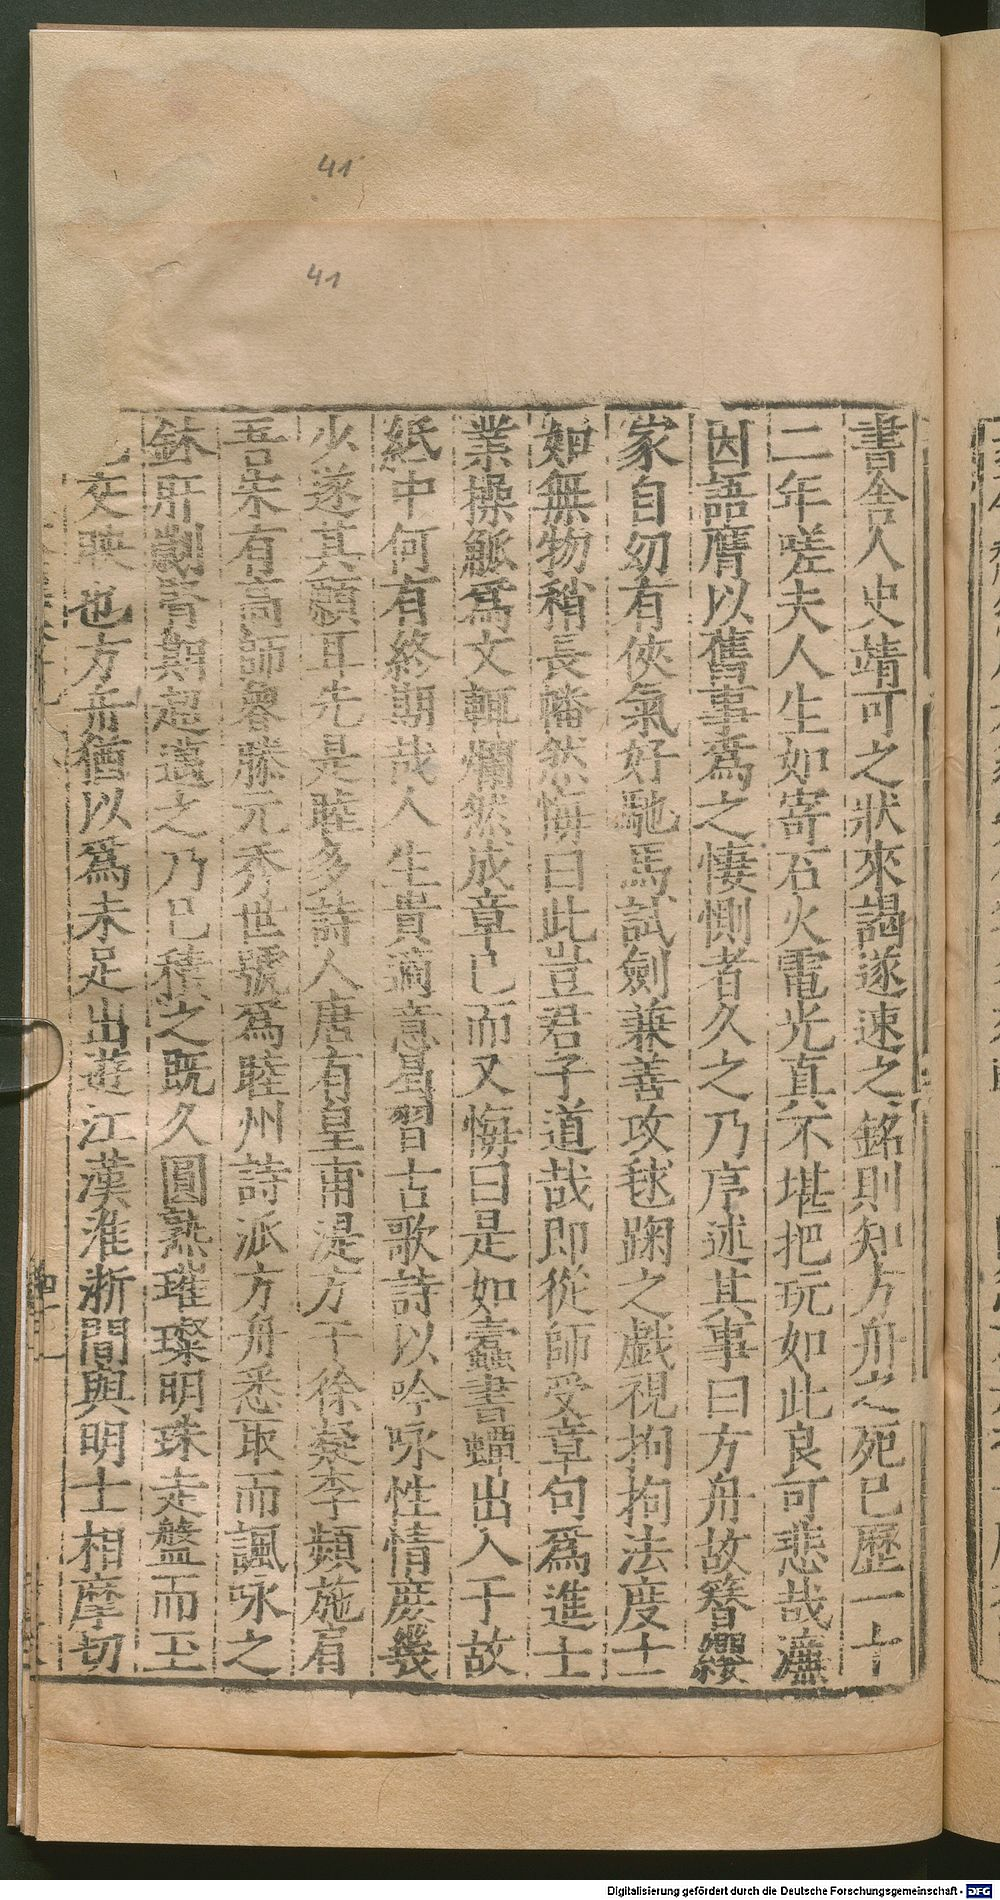 41
41
書舍人史靖可之狀來謁遂速之銘則知方舟之死已歷一十
二年嗟夫人生如寄石火電光真不堪把玩如此良可悲哉濂
因語膺以舊事爲之悽惻者久之乃序述其事曰方舟故簪纓
家自幼有俠氣好馳馬試劍兼善攻毬蹋之戲視拘拘法度士
如無物稍長幡然悔曰此豈君子道哉即從師受章句爲進士
業操觚爲文輒爛然成章已而又悔曰是如蠹書蟫出入于故
紙中何有終期哉人生貴適意曷習古歌詩以吟咏性情庶幾
少遂其願耳先是睦多詩人唐有皇甫湜方干徐凝李頻施肩
吾宋有高師魯滕元秀世號爲睦州詩派方舟悉取而諷咏之
鉥肝劌腎期超邁之乃已積之既久圓熟璀璨明珠走盤而玉
交映也方舟猶以爲未足出遊江漢淮浙間與明士相摩切
Digitalisierung gefördert durch die Deutsche Forschungsgemeinschaft - DFG